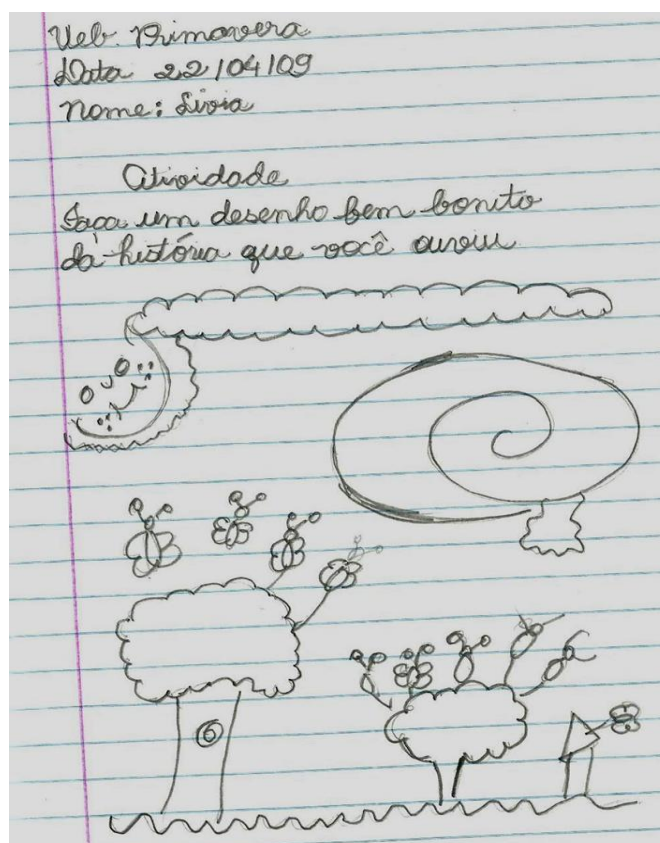 Ueb. Primavera
Data 22/04/09
Nome: Livia
Atividade
Faça um desenho bem bonito
da história que você ouviu